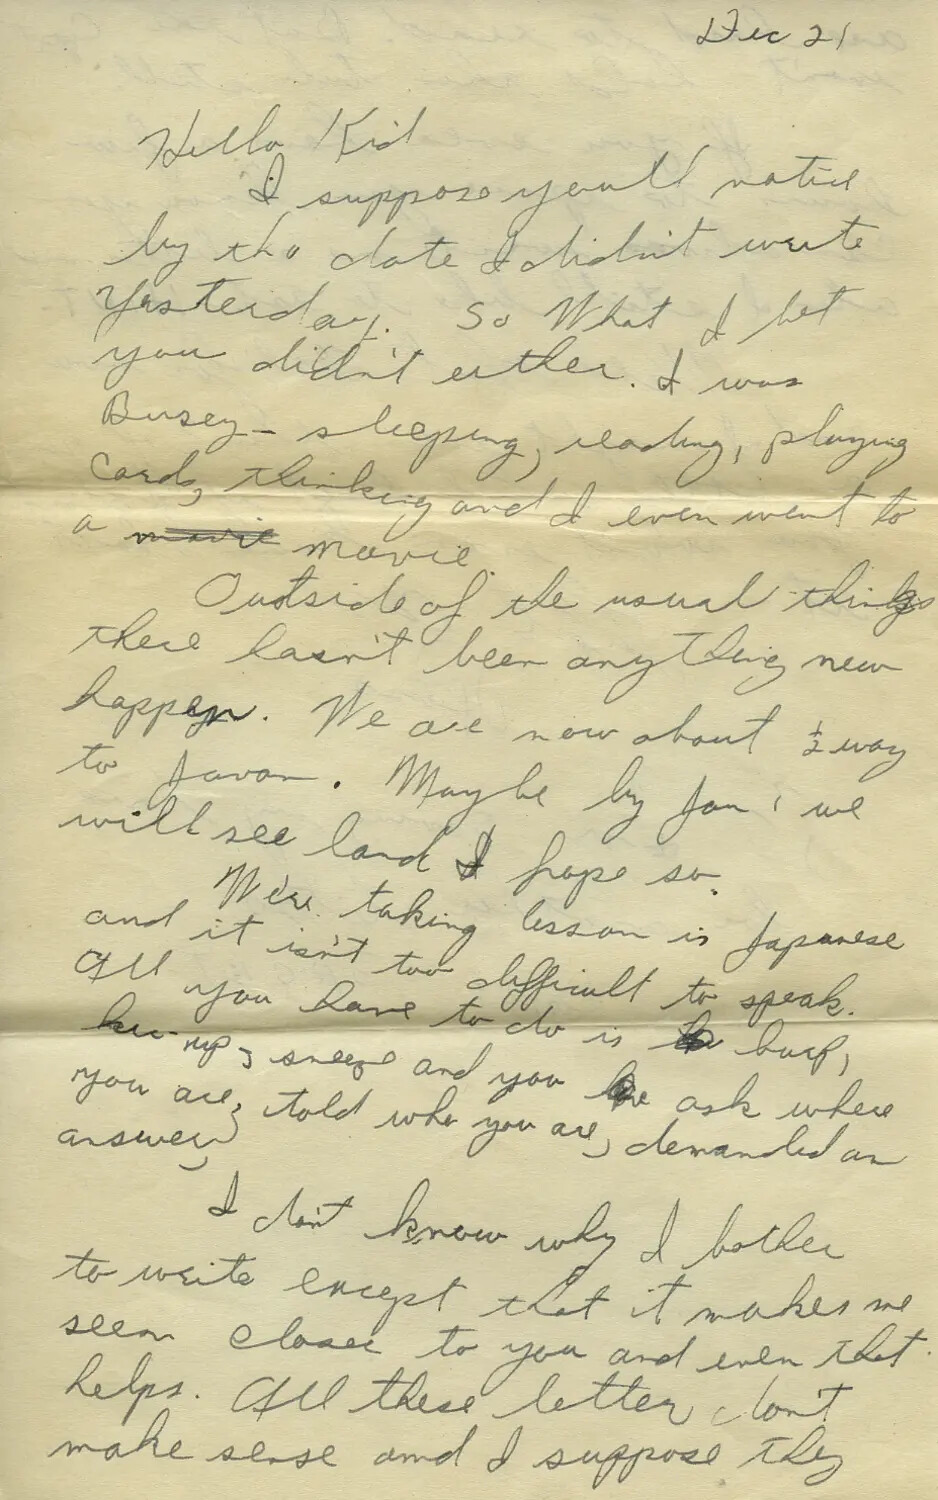 Dec 21
Hello Kid
I suppose you'll notice
by the date I didn't write
yesterday. So What I bet
you didn't either. I was
Busey - sleeping, reading, playing
cards, thinking and I even went to
a movie movie.
Outside of the usual things
there hasn't been anything new
happen. We are now about ½ way
to Javan. Maybe by Jan 1 we
will see land I hope so.
We're taking lesson is Japanese
and it isn't too difficult to speak.
All you have to do is burp,
up, sneeze and you ask where
you are, told who you are, demanded an
answer,
I don't know why I bother
to write except that it makes me
seem closer to you and even that
helps. All these letter don't
make sense and I suppose they